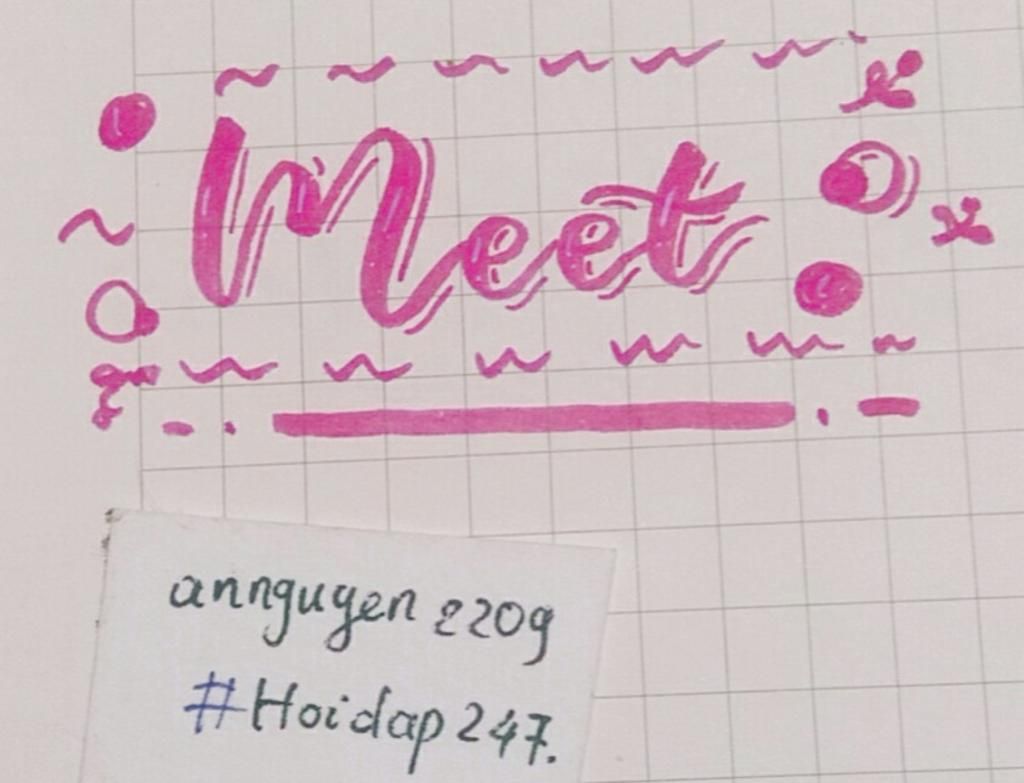 Meet
annguyen 2209
#Hoidap247.